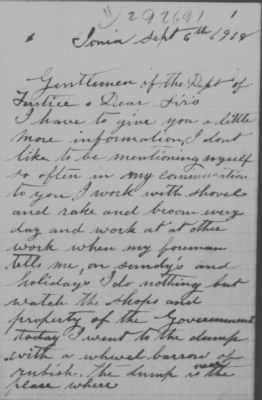 292691 1
Ionia Sept 6th 1918
Gentlemen of the Dept of
Justice & Dear Sirs
I have to give you a little
more information, I dont
like to be mentioning myself
so often in my communication
to you, I work with shovel
and rake and broom every
day and work at at other
work when my foreman
tells me, on sundy's and
holidays I do nothing but
watch the shops and
property of the Government
today I went to the dump
with a wheel barrow of
rubish. the dump is near the
place where